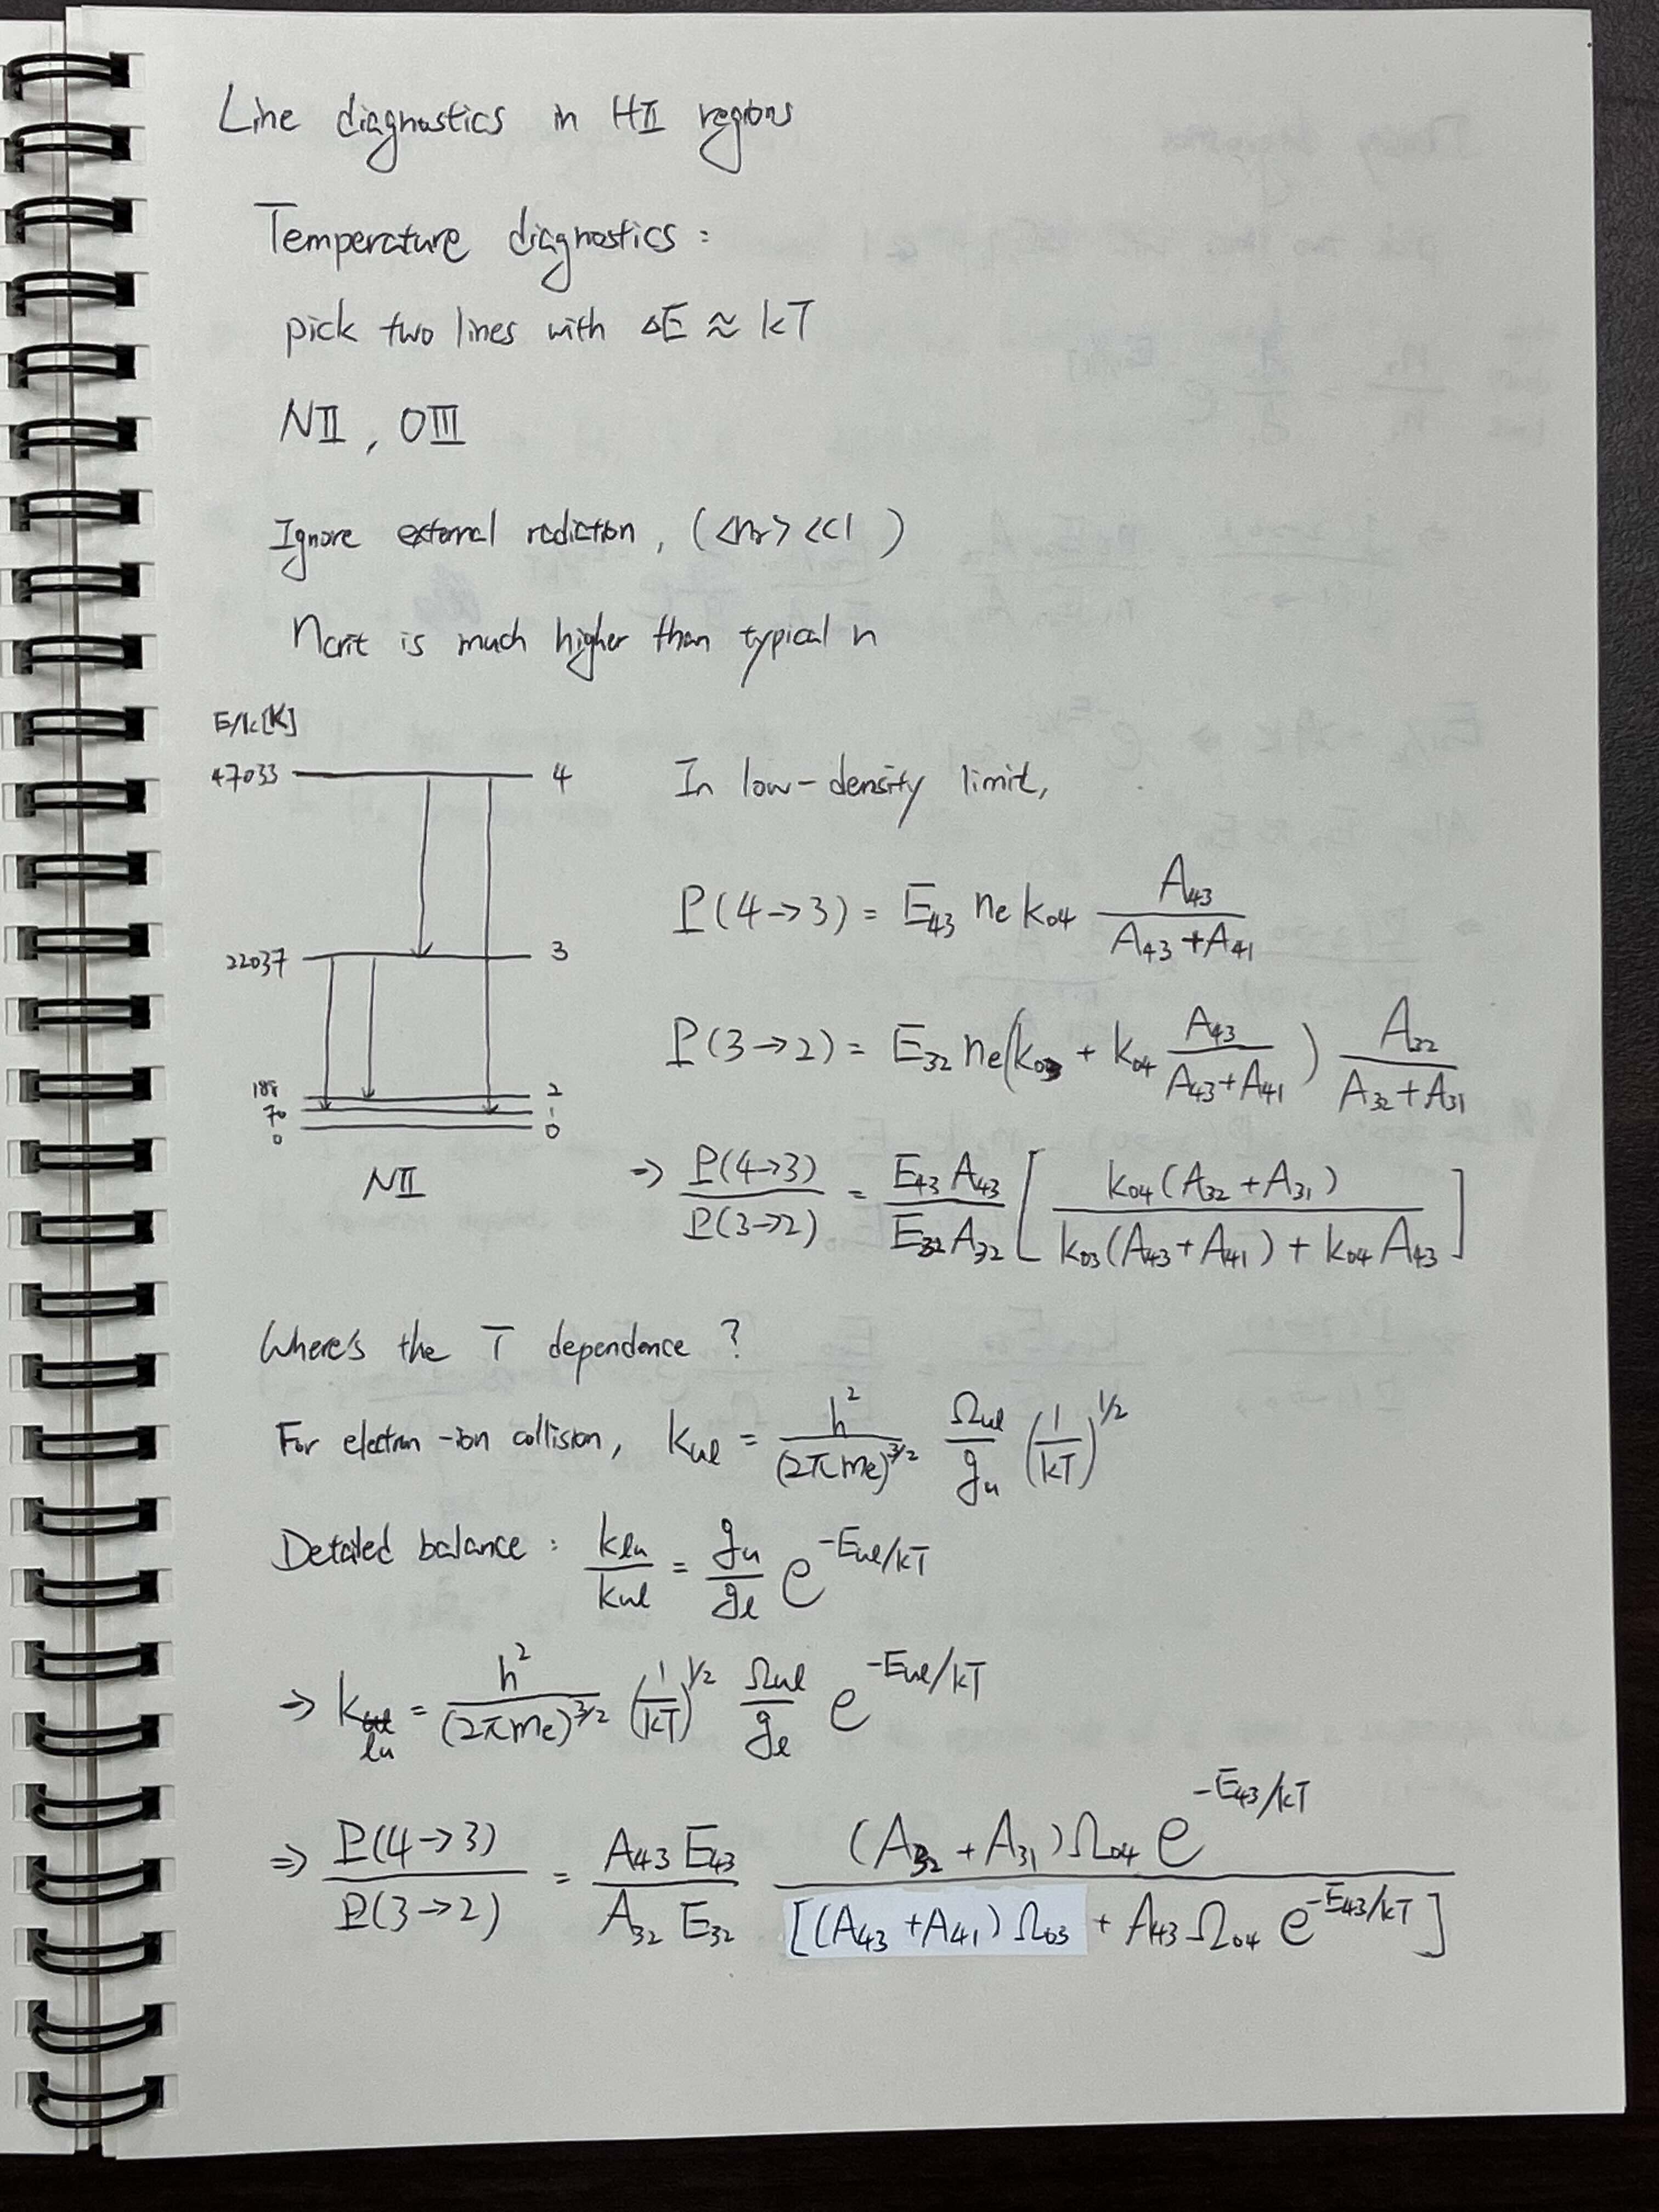 Line diagnostics in HII regions
Temperature diagnostics :
pick two lines with ΔE ≈ kT
NII , OIII
Ignore external radiation, (<nγ> <<1 )
ncrit is much higher than typical n
E/k[K]
47033 4
22037 3
188 2
70 1
0 0
NII
In low-density limit,
P(4→3) = E₄₃ ne k₀₄ A₄₃ / (A₄₃ + A₄₁)
P(3→2) = E₃₂ ne (k₀₃ + k₀₄ A₄₃ / (A₄₃ + A₄₁)) A₃₂ / (A₃₂ + A₃₁)
⇒ P(4→3) / P(3→2) = E₄₃ A₄₃ / E₃₂ A₃₂ [ k₀₄ (A₃₂ + A₃₁) / k₀₃ (A₄₃ + A₄₁) + k₀₄ A₄₃ ]
Where's the T dependence ?
For electron-ion collision, kuℓ = h² / (2πme)^3/2 Ωuℓ / gu (1/kT)^1/2
Detailed balance : kℓu / kuℓ = gu / gℓ e^-Euℓ/kT
⇒ kℓu = h² / (2πme)^3/2 (1/kT)^1/2 Ωuℓ / gℓ e^-Euℓ/kT
⇒ P(4→3) / P(3→2) = A₄₃ E₄₃ / A₃₂ E₃₂ (A₃₂ + A₃₁) Ω₀₄ e^-E₄₃/kT / [(A₄₃ + A₄₁) Ω₀₃ + A₄₃ Ω₀₄ e^-E₄₃/kT]